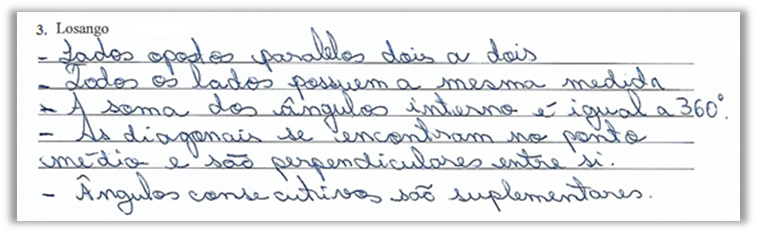 3. Losango
- Lados opostos paralelos dois a dois
- Todos os lados possuem a mesma medida
- A soma dos ângulos interno é igual a 360°.
- As diagonais se encontram no ponto
médio e são perpendiculares entre si.
- Ângulos consecutivos são suplementares.